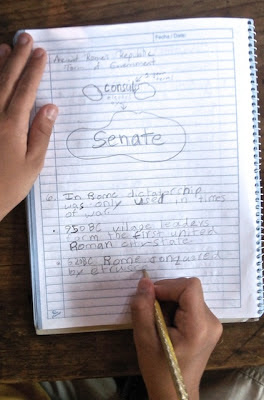 Fecha / Date:
Ancient Rome's Republic
Form of Government
consuls
Senate
In Rome dictatorship
was only used in times
of war.
750BC village leaders
form the first united
Roman city-state
Rome conquered
by etrusc